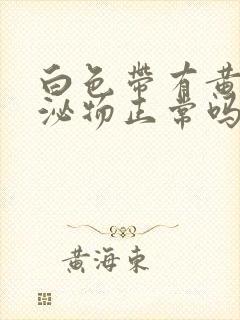 白色帶有黄
泌物正常吗
黄海東